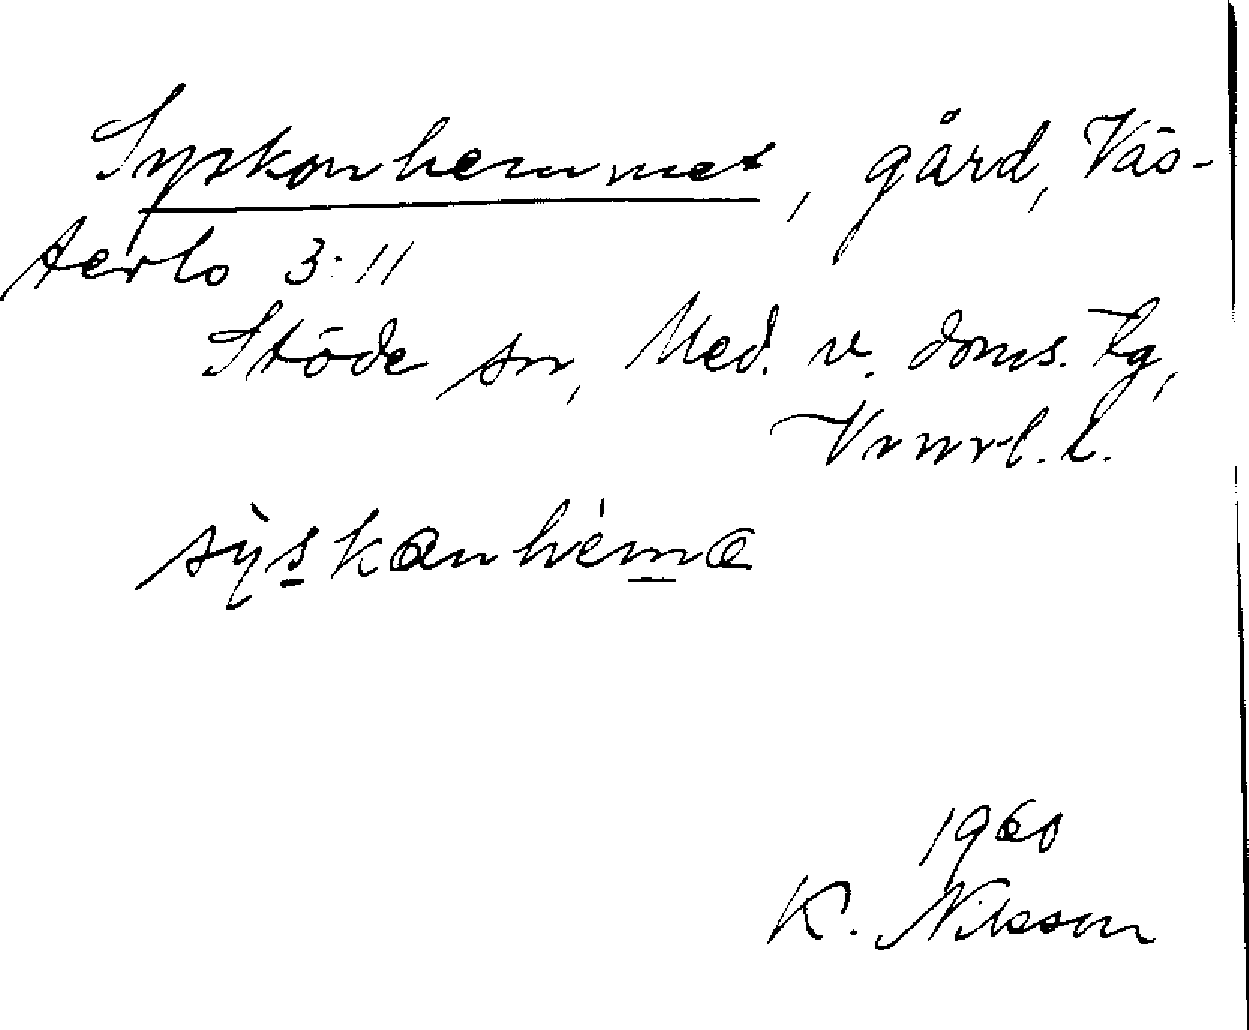 Syskonhemmet, gård, Väs-
terlo 3:11
Stöde sn, Med. v. doms. tg,
Vnorrl. l.
sỳskɷnhémɷ
1960
K. Nilsson